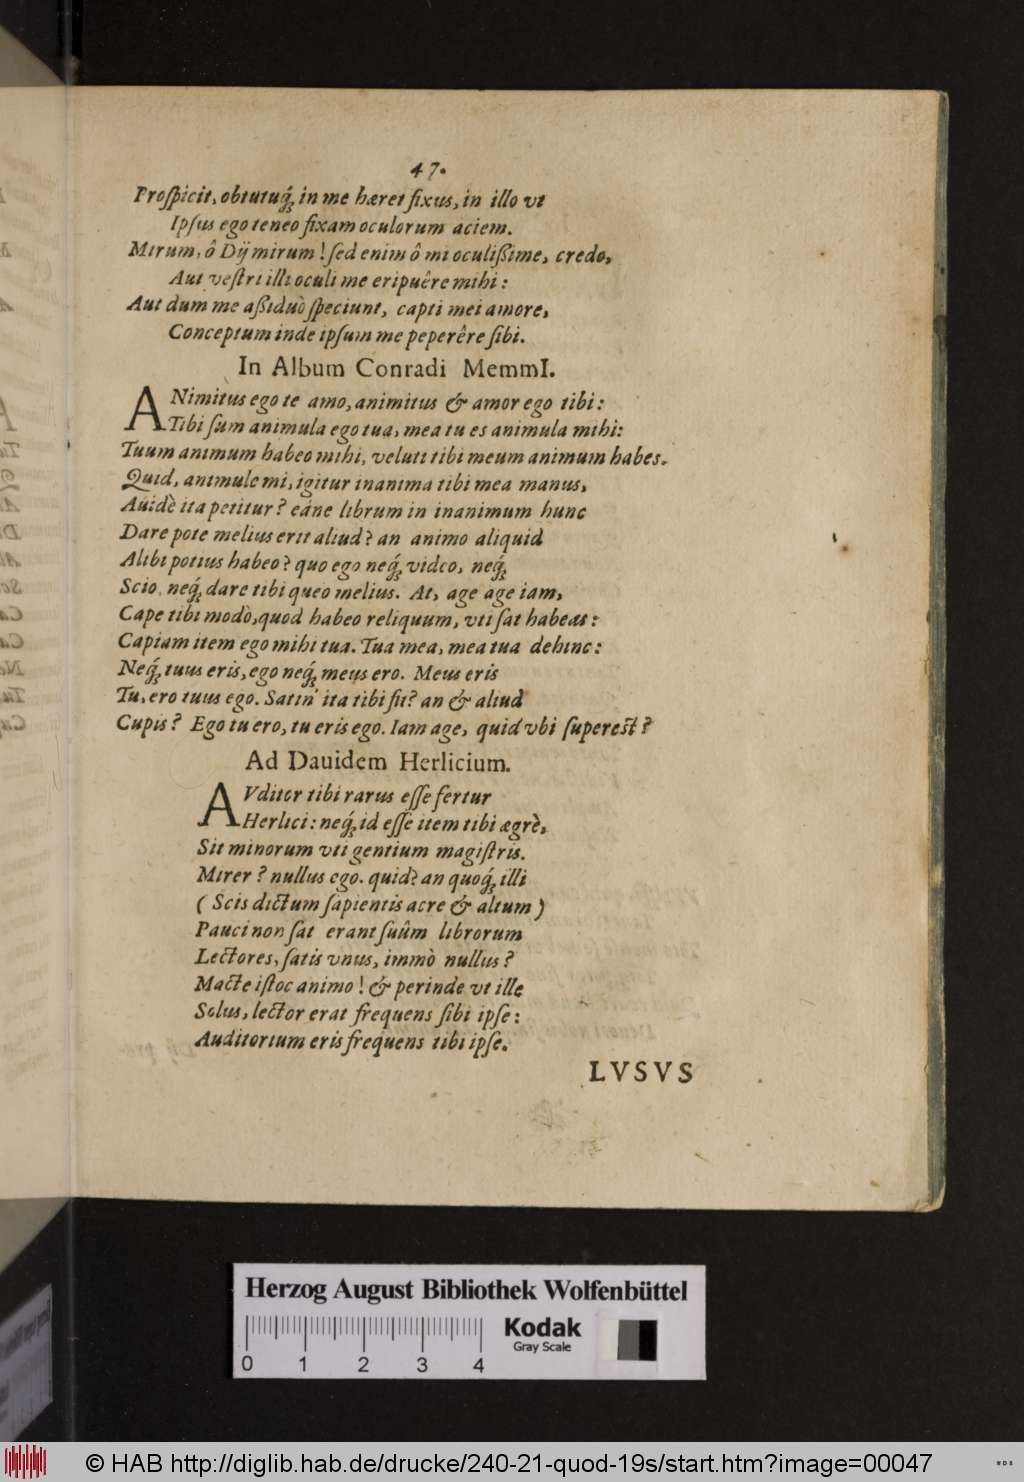 47.
Proſpicit, obtutuq́ꝫ in me hæret fixus, in illo vt
Ipſus ego teneo fixam oculorum aciem.
Mirum, ô Dij mirum! ſed enim ô mi oculißime, credo,
Aut veſtri illi oculi me eripuêre mihi:
Aut dum me aßiduò ſpeciunt, capti mei amore,
Conceptum inde ipſum me peperêre ſibi.
In Album Conradi MemmI.
ANimitus ego te amo, animitus & amor ego tibi:
Tibi ſum animula ego tua, mea tu es animula mihi:
Tuum animum habeo mihi, veluti tibi meum animum habes.
Quid, animule mi, igitur inanima tibi mea manus,
Auidè ita petitur? eáne librum in inanimum hunc
Dare pote melius erit aliud? an animo aliquid
Alibi potius habeo? quo ego neq́ꝫ video, neq́ꝫ
Scio, neq́ꝫ dare tibi queo melius. At, age age iam,
Cape tibi modò, quod habeo reliquum, vti ſat habeas:
Capiam item ego mihi tua. Tua mea, mea tua dehinc:
Neq́ꝫ tuus eris, ego neq́ꝫ meus ero. Meus eris
Tu, ero tuus ego. Satin' ita tibi ſit? an & aliud
Cupis? Ego tu ero, tu eris ego. Iam age, quid vbi ſupereſt?
Ad Dauidem Herlicium.
AVditor tibi rarus eſſe fertur
Herlici: neq́ꝫ id eſſe item tibi ægrè,
Sit minorum vti gentium magiſtris.
Mirer? nullus ego. quid? an quoq́ꝫ illi
(Scis dictum ſapientis acre & altum)
Pauci non ſat erant ſuûm librorum
Lectores, ſatis vnus, immò nullus?
Macte iſtoc animo! & perinde vt ille
Solus, lector erat frequens ſibi ipſe:
Auditorium eris frequens tibi ipſe.
LVSVS
Herzog August Bibliothek Wolfenbüttel
0 1 2 3 4
Kodak
Gray Scale
© HAB http://diglib.hab.de/drucke/240-21-quod-19s/start.htm?image=00047